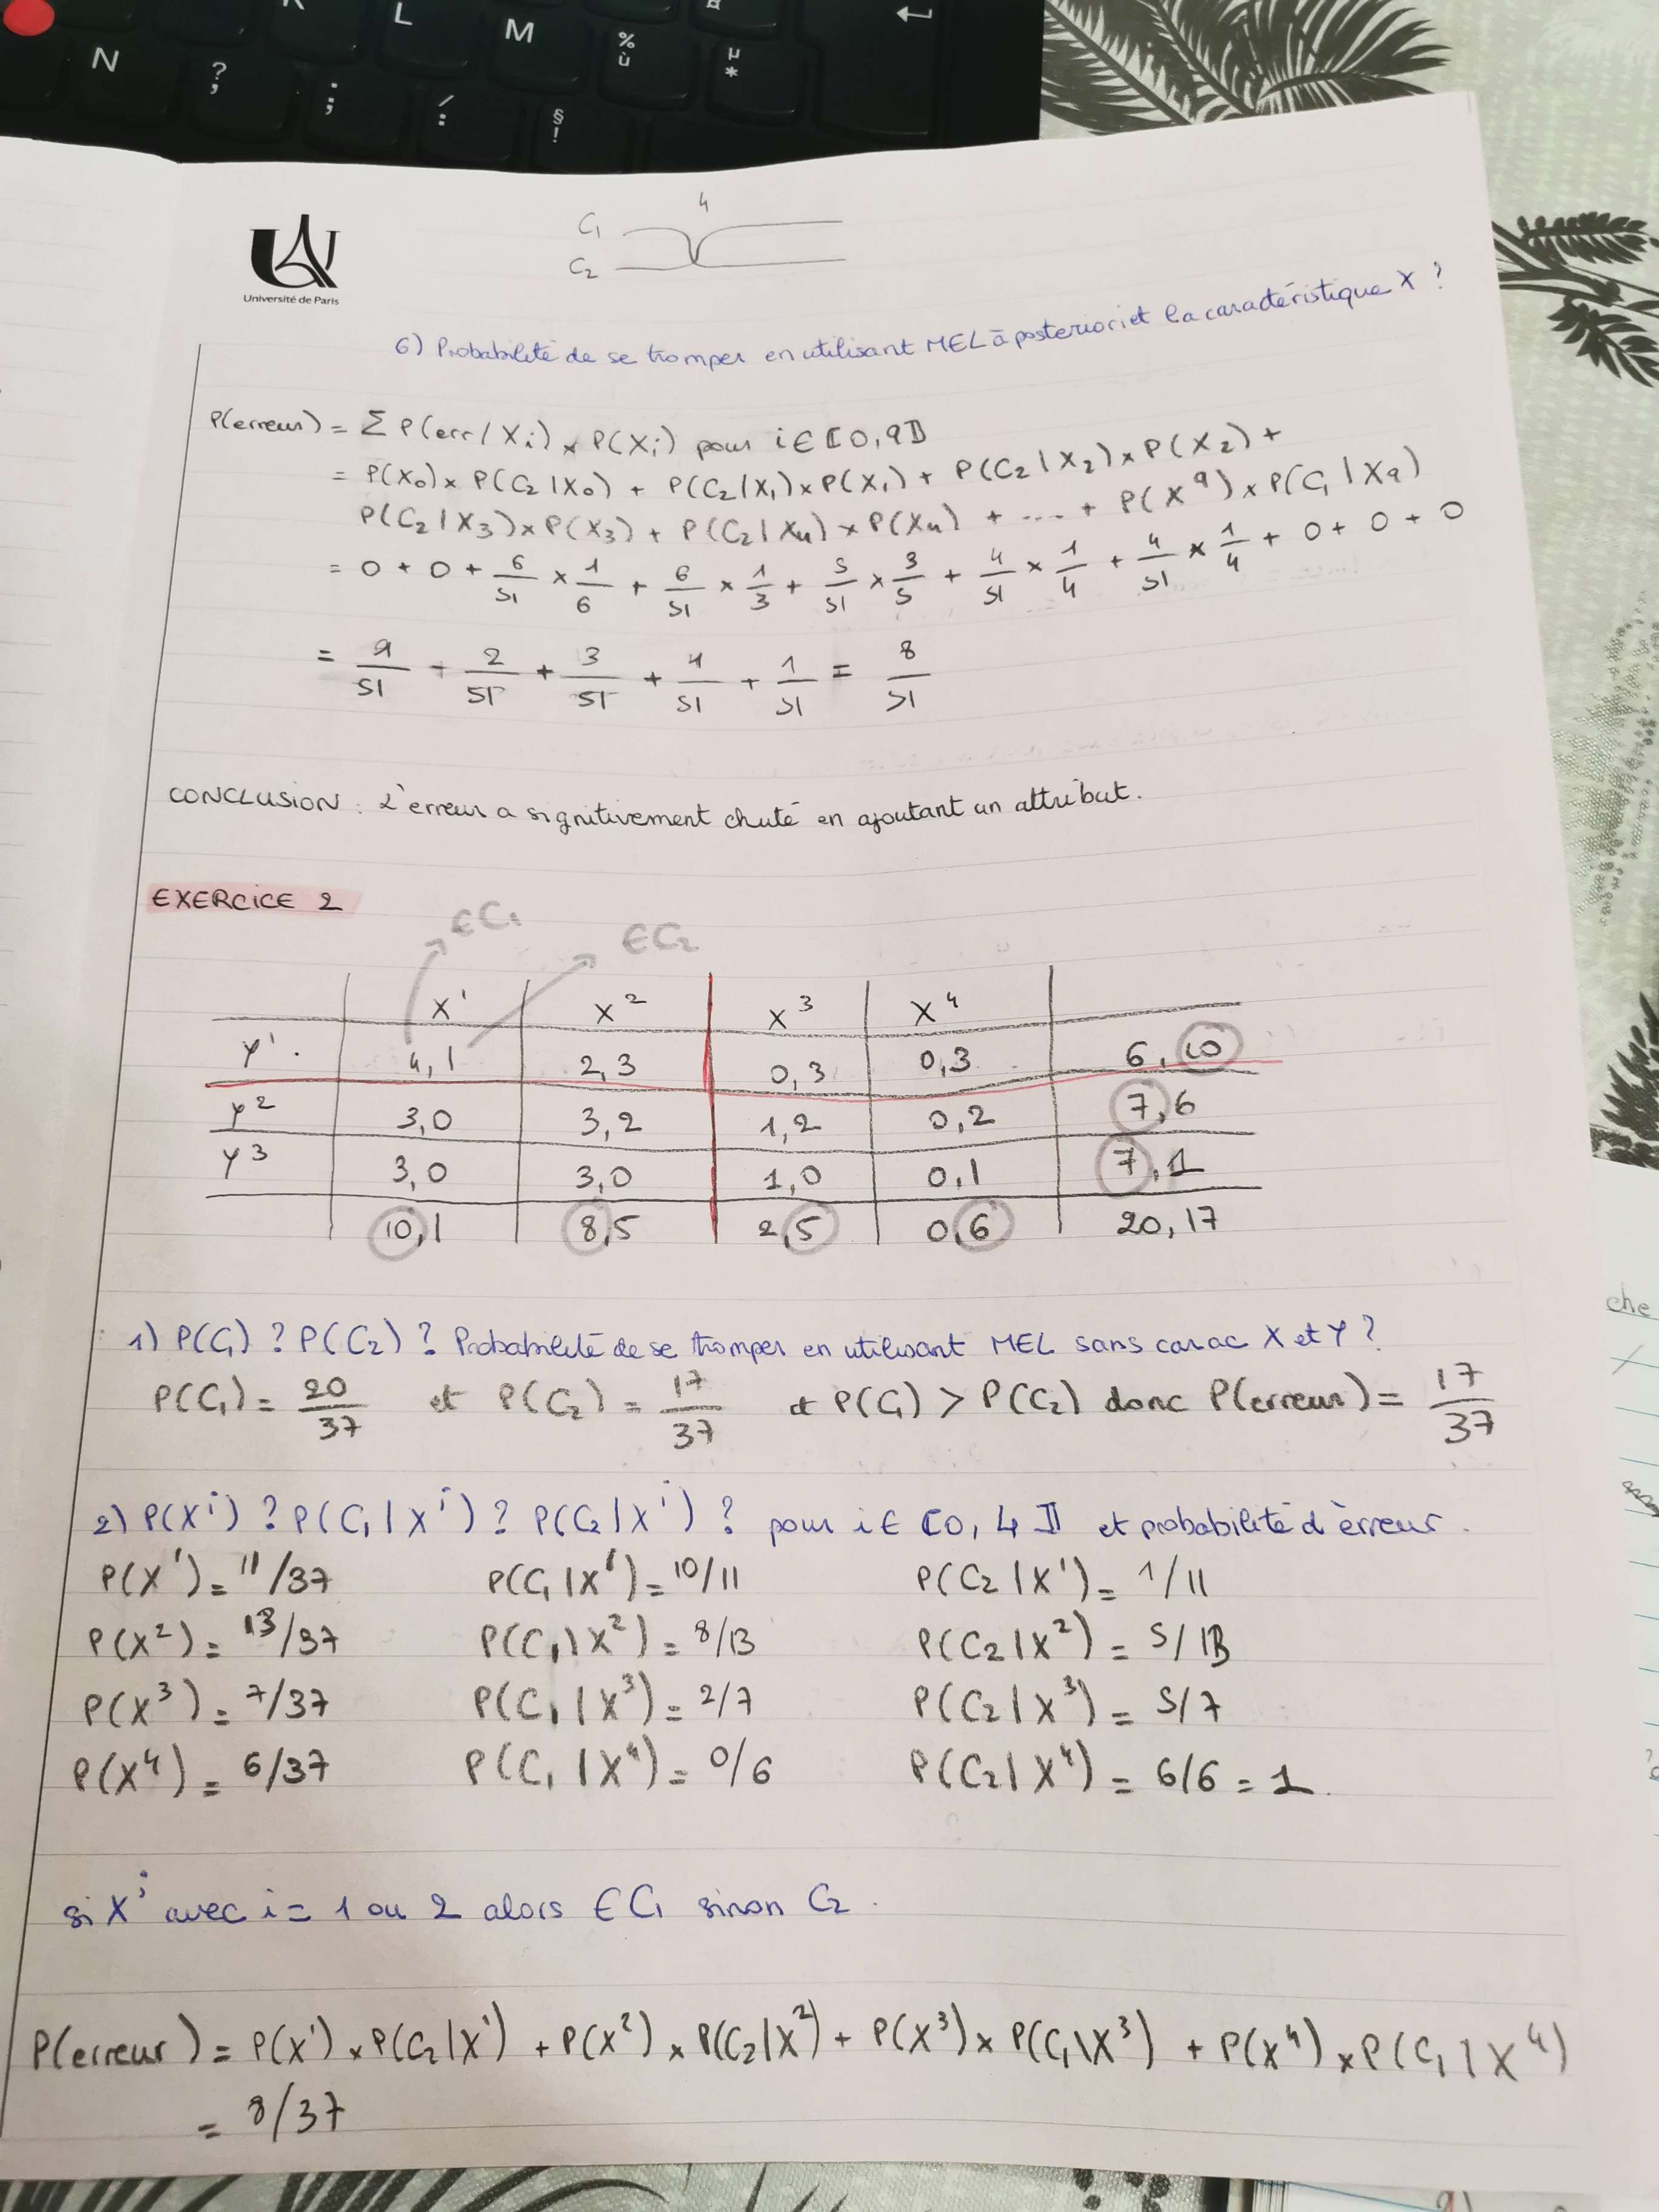 K L M
% ù
¤
µ *
N ? ; : / § !
4
C₁
C₂
Université de Paris
6) Probabilité de se tromper en utilisant MEL à posteriori et la caractéristique X ?
P(erreur) = Σ P(err / Xi) × P(Xi) pour i ∈ ⟦0,9⟧
= P(X₀) × P(C₂ | X₀) + P(C₂ | X₁) × P(X₁) + P(C₂ | X₂) × P(X₂) +
P(C₂ | X₃) × P(X₃) + P(C₂ | X₄) × P(X₄) + .... + P(X⁹) × P(C₁ | X₉)
= 0 + 0 + 6/51 × 1/6 + 6/51 × 1/3 + 5/51 × 3/5 + 4/51 × 1/4 + 4/51 × 1/4 + 0 + 0 + 0
+ 2/51 + 3/51 + 1/51 = 8/51
CONCLUSION : L'erreur a signitivement chuté en ajoutant un attribut.
EXERCICE 2
∈ C₁
∈ C₂
X¹ X² X³ X⁴
Y¹ . 4,1 2,3 0,3 0,3 6, 10
Y² 3,0 3,2 1,2 0,2 7,6
Y³ 3,0 3,0 1,0 0,1 7,1
10,1 8,5 2,5 0,6 20,17
1) P(C₁) ? P(C₂) ? Probabilité de se tromper en utilisant MEL sans carac X et Y ?
P(C₁) = 20/37 et P(C₂) = 17/37 et P(C₁) > P(C₂) donc P(erreur) = 17/37
2) P(Xⁱ) ? P(C₁ | Xⁱ) ? P(C₂ | Xⁱ) ? pour i ∈ ⟦0, 4⟧ et probabilité d'èrreur.
P(X¹) = 11/37 P(C₁ | X¹) = 10/11 P(C₂ | X¹) = 1/11
P(X²) = 13/37 P(C₁ | X²) = 8/13 P(C₂ | X²) = 5/13
P(X³) = 7/37 P(C₁ | X³) = 2/7 P(C₂ | X³) = 5/7
P(X⁴) = 6/37 P(C₁ | X⁴) = 0/6 P(C₂ | X⁴) = 6/6 = 1.
si Xⁱ avec i = 1 ou 2 alors ∈ C₁ sinon C₂.
P(erreur) = P(X¹) × P(C₂ | X¹) + P(X²) × P(C₂ | X²) + P(X³) × P(C₁ \ X³) + P(X⁴) × P(C₁ | X⁴)
= 8/37
che